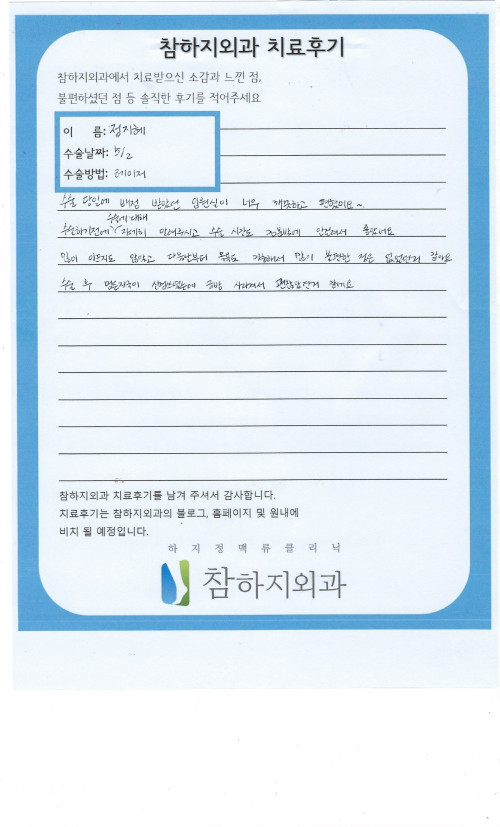 참하지외과 치료후기
참하지외과에서 치료받으신 소감과 느낀 점,
불편하셨던 점 등 솔직한 후기를 적어주세요
이 름: 정지혜
수술날짜: 5/2
수술방법: 레이저
수술 당일에 배정 받았던 입원실이 너무 깨끗하고 편했어요~
수술에 대해
수술하기전에 자세히 알려주시고 수술 시간도 금방이라
많이 아프지도 않았고 다음날부터 활동도 가능해서 많이 불편한 점은 없었던거 같아요
수술 후 멍든자국이 신경쓰였는데 금방 사라져서 괜찮았던거 같아요
참하지외과 치료후기를 남겨 주셔서 감사합니다.
치료후기는 참하지외과의 블로그, 홈페이지 및 원내에
비치 될 예정입니다.
하지정맥류클리닉
참하지외과